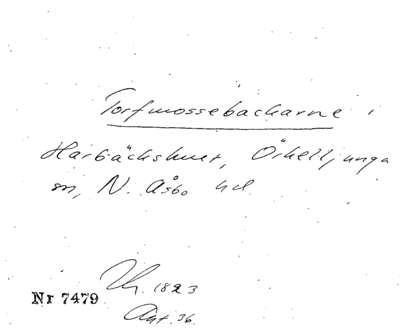 Torfmossebackarne i
Harbäckshult, Örkelljunga
sn, N. Åsbo hd
1823
Nr 7479
Akt. 36.